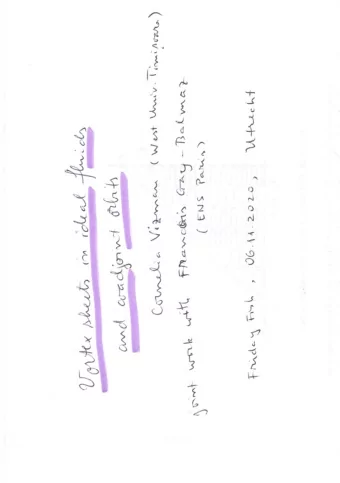 Vortex sheets in ideal fluids
and coadjoint orbits
Cornelia Vizman (West Univ. Timișoara)
joint work with François Gay-Balmaz
(ENS Paris)
Friday Fish, 06.11.2020, Utrecht